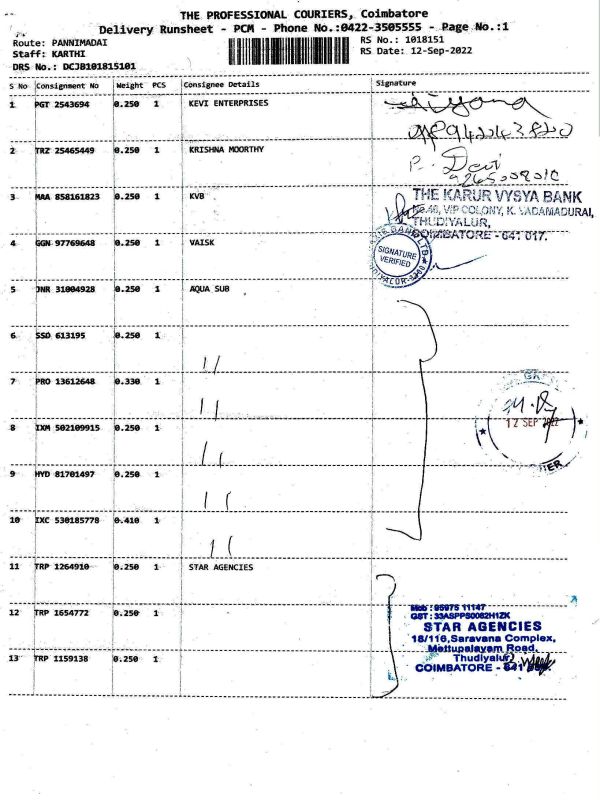 THE PROFESSIONAL COURIERS, Coimbatore
Delivery Runsheet - PCM - Phone No.:0422-3505555 - Page No.:1
Route: PANNIMADAI
Staff: KARTHI
DRS No.: DCJB101815101
RS No.: 1018151
RS Date: 12-Sep-2022
S No Consignment No Weight PCS Consignee Details Signature
1 PGT 2543694 0.250 1 KEVI ENTERPRISES
2 TRZ 25465449 0.250 1 KRISHNA MOORTHY
P. Devi
3 MAA 858161823 0.250 1 KVB
THE KARUR VYSYA BANK
No.46, VIP COLONY, K. VADAMADURAI,
THUDIYALUR,
COIMBATORE - 641 017.
4 GGN 97769648 0.250 1 VAISK
SIGNATURE
VERIFIED
5 JNR 31004928 0.250 1 AQUA SUB
6 SSD 613195 0.250 1
7 PRO 13612648 0.330 1
12 SEP 2022
8 IXM 502109915 0.250 1
9 HYD 81701497 0.250 1
10 IXC 530185778 0.410 1
11 TRP 1264910 0.250 1 STAR AGENCIES
12 TRP 1654772 0.250 1
Mob : 95975 11147
STAR AGENCIES
18/116, Saravana Complex,
Mettupalayam Road,
Thudiyalur
COIMBATORE - 641
13 TRP 1159138 0.250 1